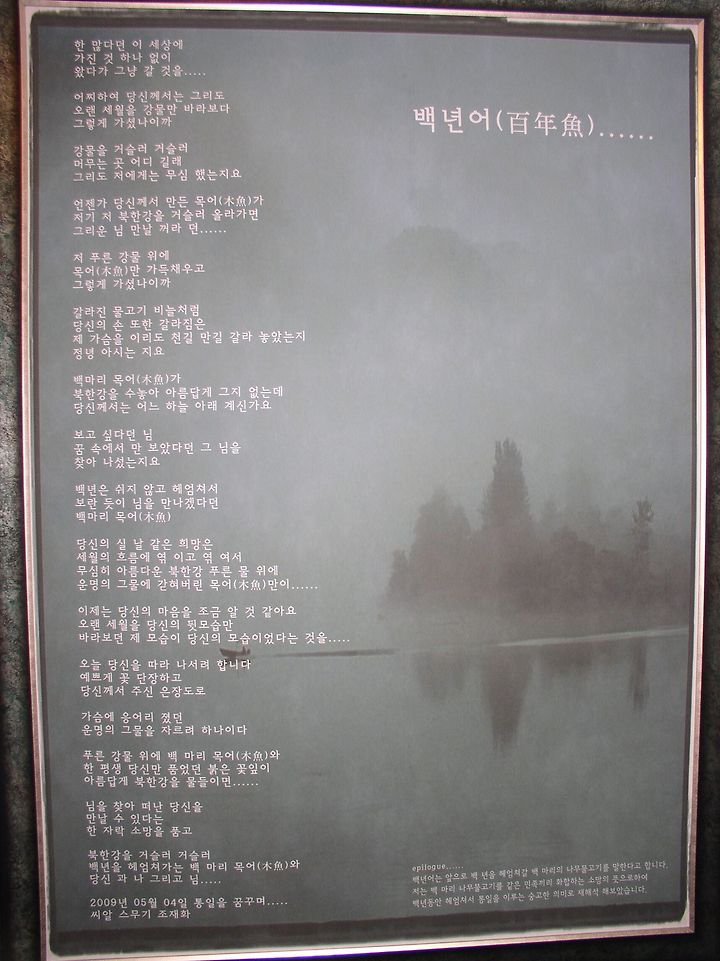 백년어(百年魚)......
한 많다던 이 세상에
가진 것 하나 없이
왔다가 그냥 갈 것을.....
어찌하여 당신께서는 그리도
오랜 세월을 강물만 바라보다
그렇게 가셨나이까
강물을 거슬러 거슬러
머무는 곳 어디 길래
그리도 저에게는 무심 했는지요
언젠가 당신께서 만든 목어(木魚)가
저기 저 북한강을 거슬러 올라가면
그리운 님 만날 꺼라 던......
저 푸른 강물 위에
목어(木魚)만 가득채우고
그렇게 가셨나이까
갈라진 물고기 비늘처럼
당신의 손 또한 갈라짐은
제 가슴을 이리도 천길 만길 갈라 놓았는지
정녕 아시는 지요
백마리 목어(木魚)가
북한강을 수놓아 아름답게 그지 없는데
당신께서는 어느 하늘 아래 계신가요
보고 싶다던 님
꿈 속에서 만 보았다던 그 님을
찾아 나섰는지요
백년은 쉬지 않고 헤엄쳐서
보란 듯이 님을 만나겠다던
백마리 목어(木魚)
당신의 실 날 같은 희망은
세월의 흐름에 엮 이고 엮 여서
무심히 아름다운 북한강 푸른 물 위에
운명의 그물에 갇혀버린 목어(木魚)만이......
이제는 당신의 마음을 조금 알 것 같아요
오랜 세월을 당신의 뒷모습만
바라보던 제 모습이 당신의 모습이었다는 것을.....
오늘 당신을 따라 나서려 합니다
예쁘게 꽃 단장하고
당신께서 주신 은장도로
가슴에 응어리 졌던
운명의 그물을 자르려 하나이다
푸른 강물 위에 백 마리 목어(木魚)와
한 평생 당신만 품었던 붉은 꽃잎이
아름답게 북한강을 물들이면......
님을 찾아 떠난 당신을
만날 수 있다는
한 자락 소망을 품고
북한강을 거슬러 거슬러
백년을 헤엄쳐가는 백 마리 목어(木魚)와
당신 과 나 그리고 님.....
2009년 05월 04일 통일을 꿈꾸며.....
씨알 스무기 조재화
epilogue......
백년어는 앞으로 백 년을 헤엄쳐갈 백 마리의 나무물고기를 말한다고 합니다.
저는 백 마리 나무물고기를 같은 민족끼리 화합하는 소망의 뜻으로하여
백년동안 헤엄쳐서 통일을 이루는 숭고한 의미로 재해석 해보았습니다.